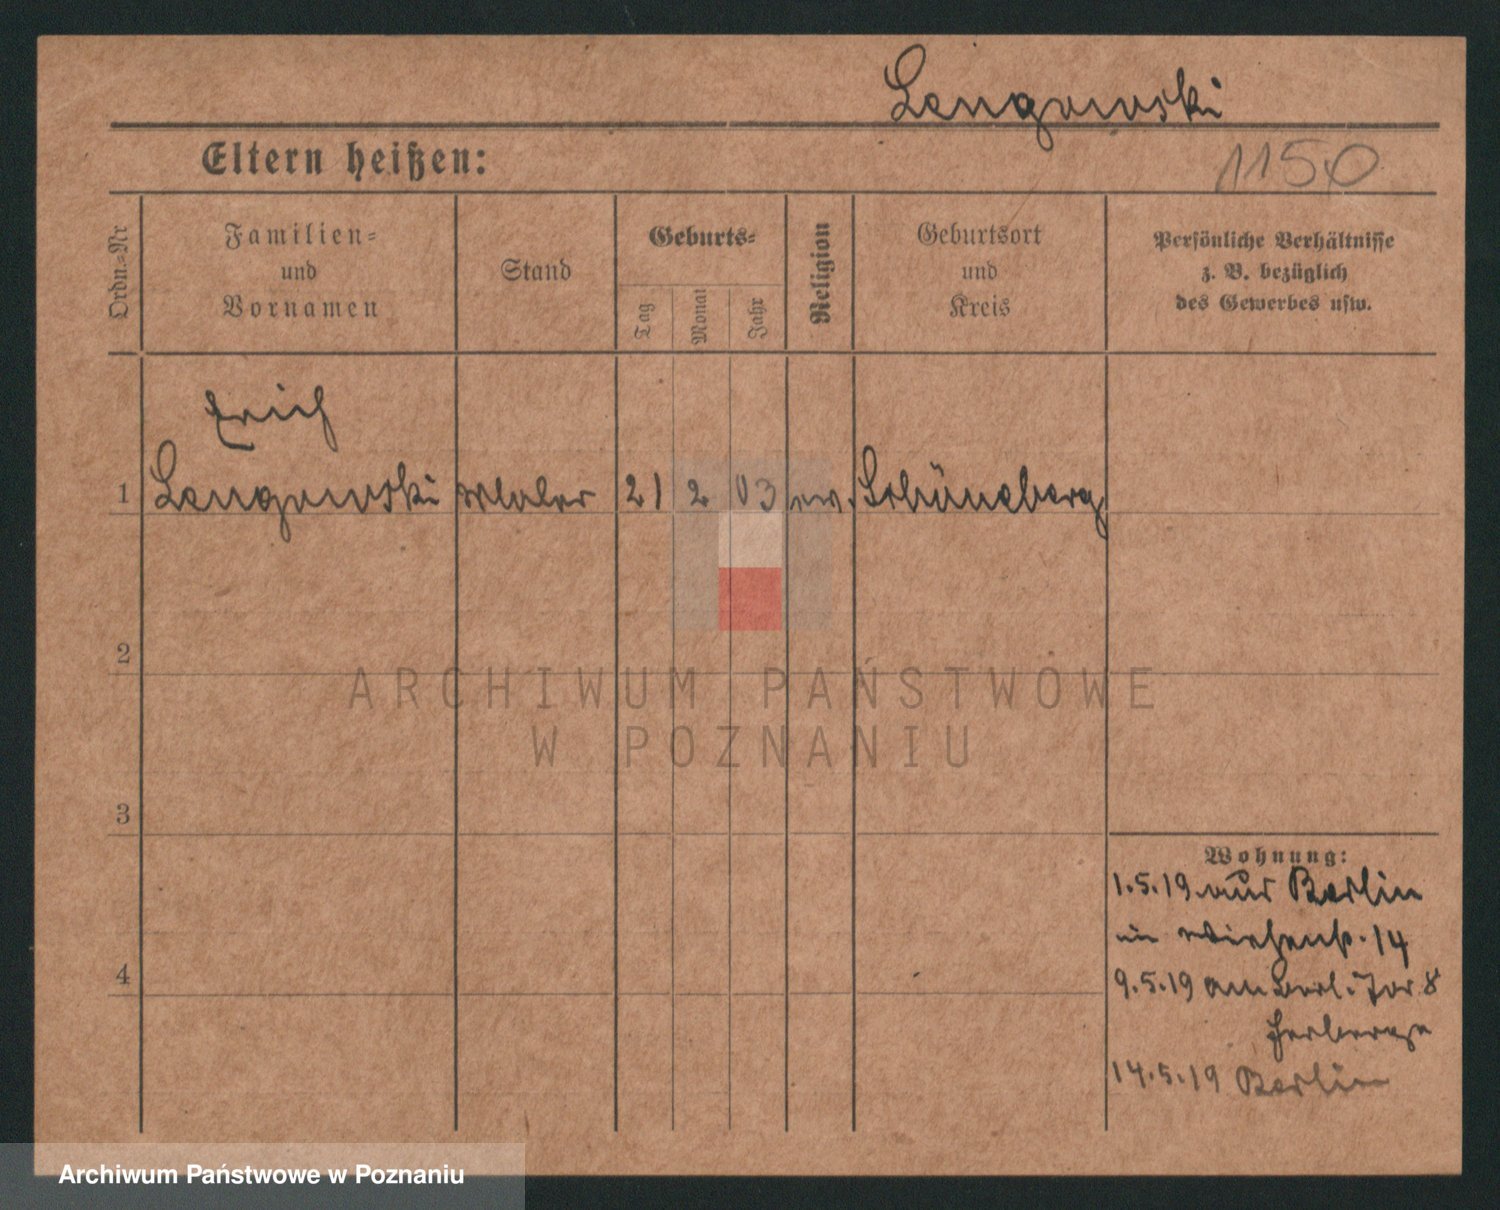 Lengowski
Eltern heißen:
1150
Ordn.=Nr
Familien=
und
Vornamen
Stand
Geburts=
Tag
Monat
Jahr
Religion
Geburtsort
und
Kreis
Persönliche Verhältnisse
z. B. bezüglich
des Gewerbes usw.
Erich
1 Lengowski Maler 21 2 03 ev. Schöneberg
2
ARCHIWUM PAŃSTWOWE
W POZNANIU
3
Wohnung:
1.5.19 aus Berlin
in 14
4
9.5.19 am Berl. Tor 8
Herberge
14.5.19 Berlin
Archiwum Państwowe w Poznaniu